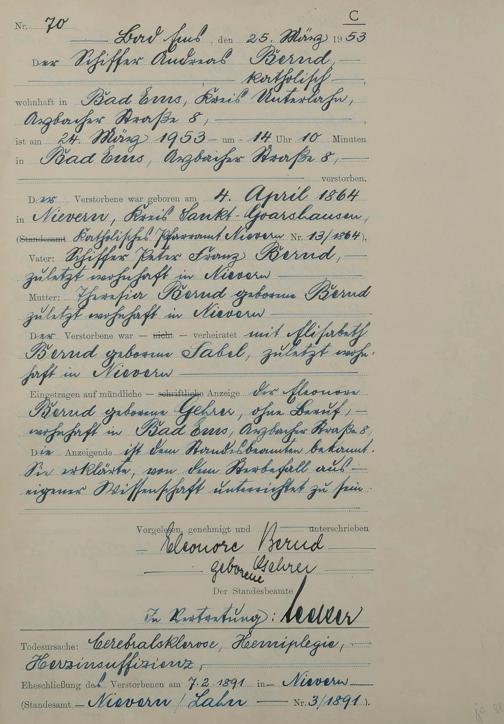 C
Nr. 70
Bad Ems, den 25. März 1953
Der Schiffer Andreas Bernd,
katholisch,
wohnhaft in Bad Ems, Kreis Unterlahn,
Arzbacher Straße 8,
ist am 24. März 1953 – um – 14 Uhr 10 Minuten
in Bad Ems, Arzbacher Straße 8,
verstorben.
Der Verstorbene war geboren am 4. April 1864
in Nievern, Kreis Sankt Goarshausen,
(Standesamt Katholisches Pfarramt Nievern Nr. 13/1864),
Vater: Schiffer Peter Franz Bernd,
zuletzt wohnhaft in Nievern
Mutter: Theresia Bernd geborene Bernd
zuletzt wohnhaft in Nievern
Der Verstorbene war – nicht – verheiratet mit Elisabeth
Bernd geborene Sabel, zuletzt wohn-
haft in Nievern
Eingetragen auf mündliche – schriftliche Anzeige der Eleonore
Bernd geborene Gehrer, ohne Beruf,
wohnhaft in Bad Ems, Arzbacher Straße 8,
Die Anzeigende ist dem Standesbeamten bekannt.
Sie erklärte, von dem Sterbefall aus
eigener Wissenschaft unterrichtet zu sein.
Vorgelesen, genehmigt und unterschrieben
Eleonore Bernd
geborene Gehrer
Der Standesbeamte
In Vertretung:
Todesursache: Cerebralsklerose, Hemiplegie,
Herzinsuffizienz,
Eheschließung des Verstorbenen am 7.2.1891 in Nievern
(Standesamt Nievern / Lahn Nr. 3/1891).